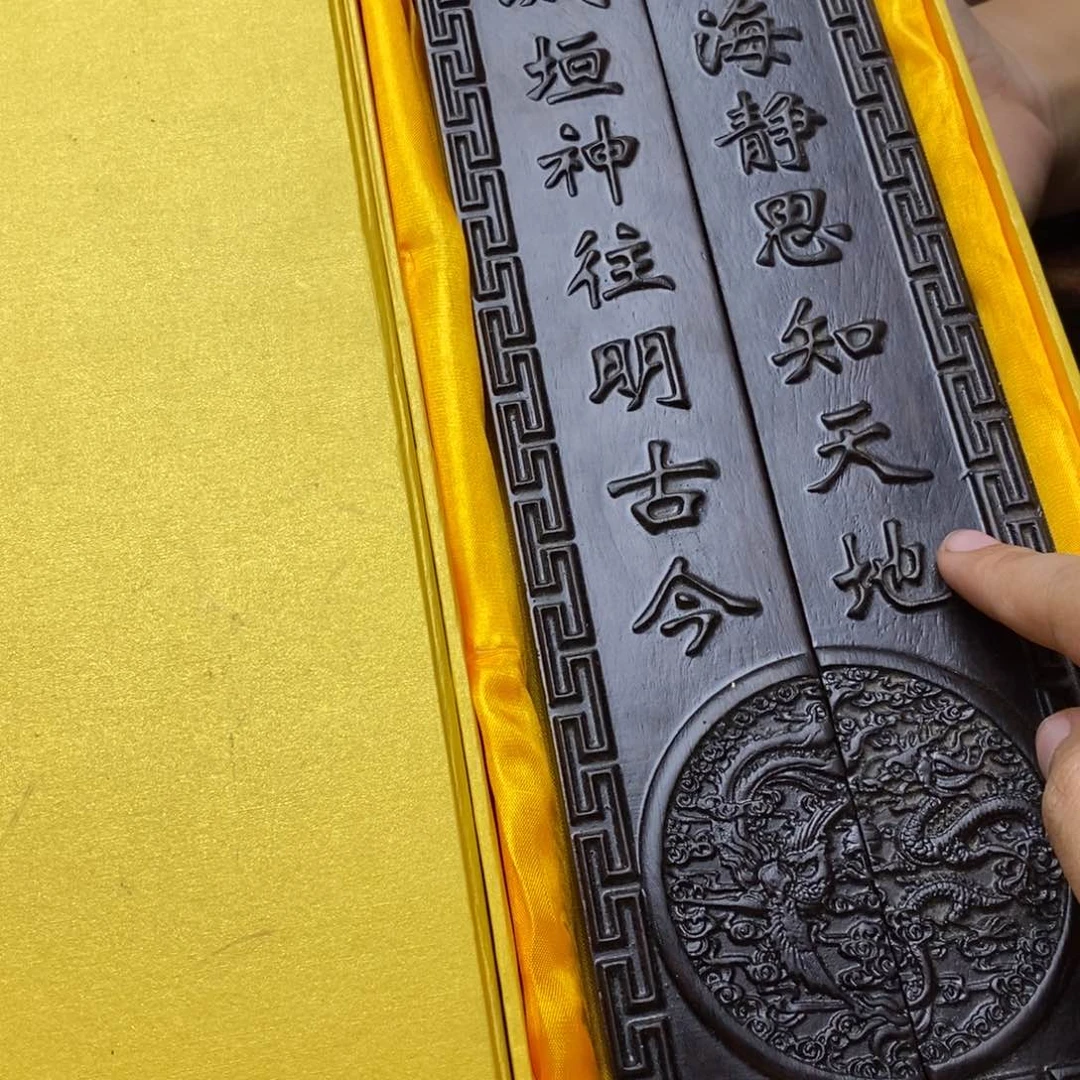 海靜思知天地
垣神往明古今